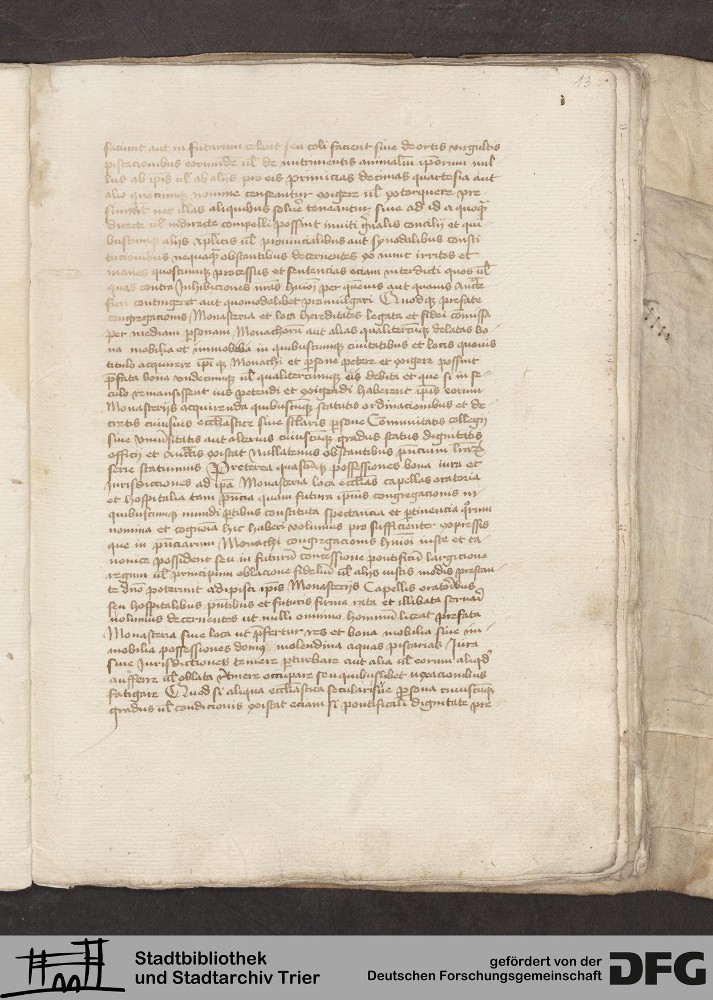 13
faciunt aut in futurum colent seu coli facient siue de ortis virgultis
piscacionibus eorumdem vel de nutrimentis animalium ipsorum nul
lus ab ipis vl ab alijs pro eis primicias decimas quartesia aut
alio quocumque nomine censeantur exigere vl extorquere pre
sumat nec illas aliquibus soluere teneantur siue ad id a quoque
directe vl indirecte compelli possint inuiti generalis concilii et qui
buscumque alijs aplicis vl prouincialibus aut synodalibus consti
tucionibus nequaquam obstantibus decernentes ex nunc irritos et
inanes quoscumque processus et sentencias eciam interdicti quos vl
quas contra inhibiciones nras huiusmodi per quemuis aut quamuis
fieri contingeret aut quomodolibet promulgari Quodque prefate
congregacionis Monasteria et loca hereditates legata et fidei commissa
per mediam personam Monachorum aut alias qualitercumque delatas bo
na mobilia et immobilia in quibuscumque ciuitatibus et locis quouis
titulo acquirere ipique Monachi et persone petere et exigere possint
prefata bona vndecumque vl qualitercumque eis debita et que si in se
culo remansissent ius petendi et exigendi haberent ipis eorum
Monasterijs acquirenda quibuscumque statutis ordinacionibus et de
cretis cuiusuis ecclesiastice siue secularis persone Comunitatis collegij
siue vniuersitatis aut alterius cuiuscumque gradus status dignitatis
officij et existat Nullatenus obstantibus presencium
serie statuimus Preterea quascumque possessiones bona iura et
Jurisdictiones ad ipa Monasteria loca ecclesias capellas oratoria
et hospitalia tam presencia quam futura ipius congregacionis in
quibuscumque mundi partibus constituta spectancia et pertinencia quorum
nomina et cognomina hic haberi volumus pro sufficienter expressis
que in presenciarum Monachi congregacionis huiusmodi iuste et ca
nonice possident seu in futurum concessione pontificum largicione
regum vl principum oblacione fidelium vl alijs iustis modis prestan
te domino poterunt adipisci ipis Monasterijs Capellis oratorijs
seu hospitalibus presentibus et futuris firma rata et illibata seruari
volumus decernentes ut nulli omnino hominum liceat prefata
Monasteria siue loca ut prefertur res et bona mobilia siue im
mobilia possessiones domus molendina aquas piscarias Jura
siue Jurisdictiones temere perturbare aut alia vl eorum aliquod
aufferre vl oblata retinere occupare seu quibuslibet vexacionibus
fatigare Quod si aliqua ecclesiastica secularisue persona cuiuscumque
gradus vl condicionis existat eciam si pontificali dignitate pre
Stadtbibliothek
und Stadtarchiv Trier
gefördert von der
Deutschen Forschungsgemeinschaft
DFG